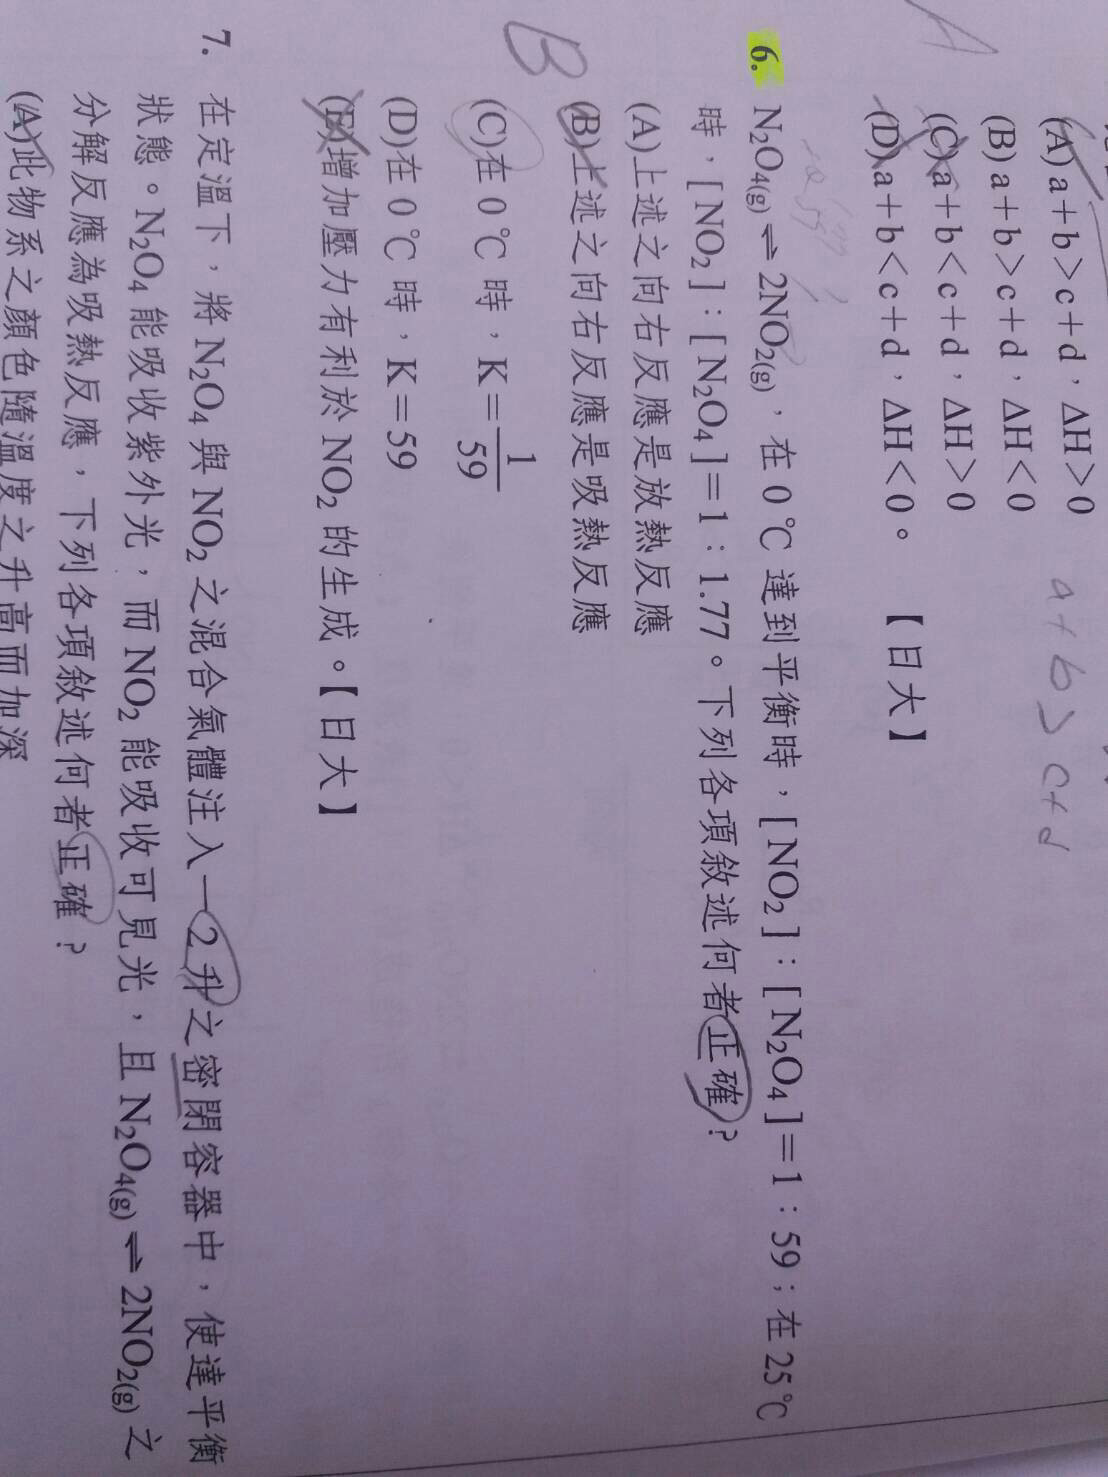 A
(A) a＋b＞c＋d，ΔH＞0
(B) a＋b＞c＋d，ΔH＜0
(C) a＋b＜c＋d，ΔH＞0
(D) a＋b＜c＋d，ΔH＜0。 【日大】
a+b>c+d
6. N₂O₄(g) ⇌ 2NO₂(g)，在 0 ℃ 達到平衡時，[NO₂]：[N₂O₄]＝1：59；在 25 ℃
時，[NO₂]：[N₂O₄]＝1：1.77。下列各項敘述何者正確？
(A)上述之向右反應是放熱反應
(B)上述之向右反應是吸熱反應
B
(C)在 0 ℃ 時，K＝1/59
(D)在 0 ℃ 時，K＝59
(E)增加壓力有利於 NO₂ 的生成。【日大】
7. 在定溫下，將 N₂O₄ 與 NO₂ 之混合氣體注入一 2 升之密閉容器中，使達平衡
狀態。N₂O₄ 能吸收紫外光，而 NO₂ 能吸收可見光，且 N₂O₄(g) ⇌ 2NO₂(g) 之
分解反應為吸熱反應，下列各項敘述何者正確？
(A)此物系之顏色隨溫度之升高而加深